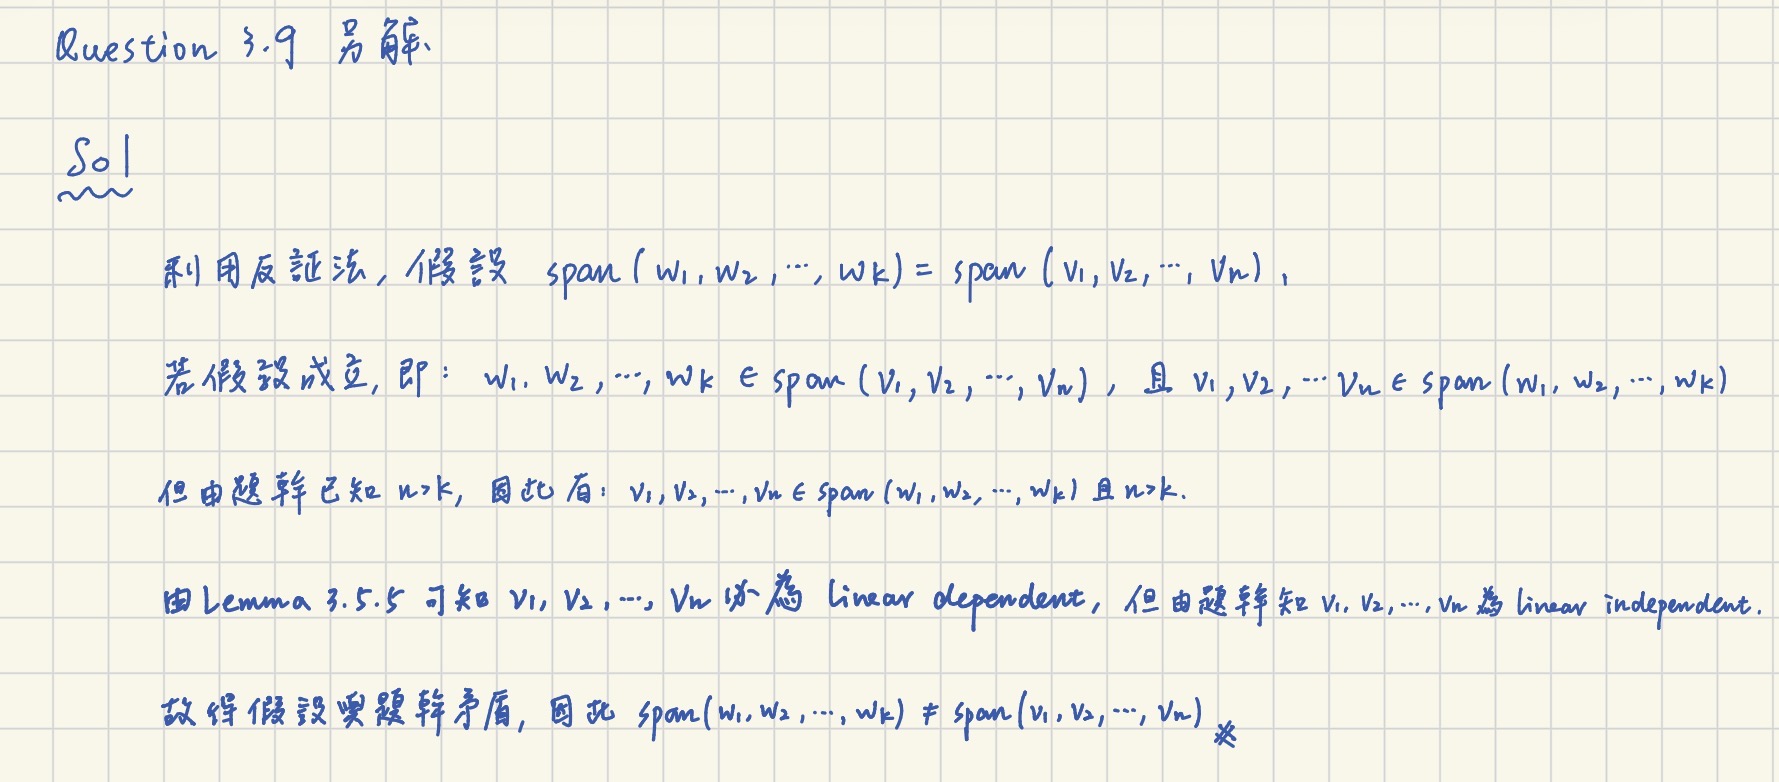 Question 3.9 另解
Sol
利用反証法, 假設 span(w1, w2, ⋯, wk) = span(v1, v2, ⋯, vn),
若假設成立, 即: w1, w2, ⋯, wk ∈ span(v1, v2, ⋯, vn), 且 v1, v2, ⋯ vn ∈ span(w1, w2, ⋯, wk)
但由題幹已知 n>k, 因此有: v1, v2, ⋯, vn ∈ span(w1, w2, ⋯, wk) 且 n>k.
由 Lemma 3.5.5 可知 v1, v2, ⋯, vn 必為 linear dependent, 但由題幹知 v1, v2, ⋯, vn 為 linear independent.
故得假設與題幹矛盾, 因此 span(w1, w2, ⋯, wk) ≠ span(v1, v2, ⋯, vn) ※